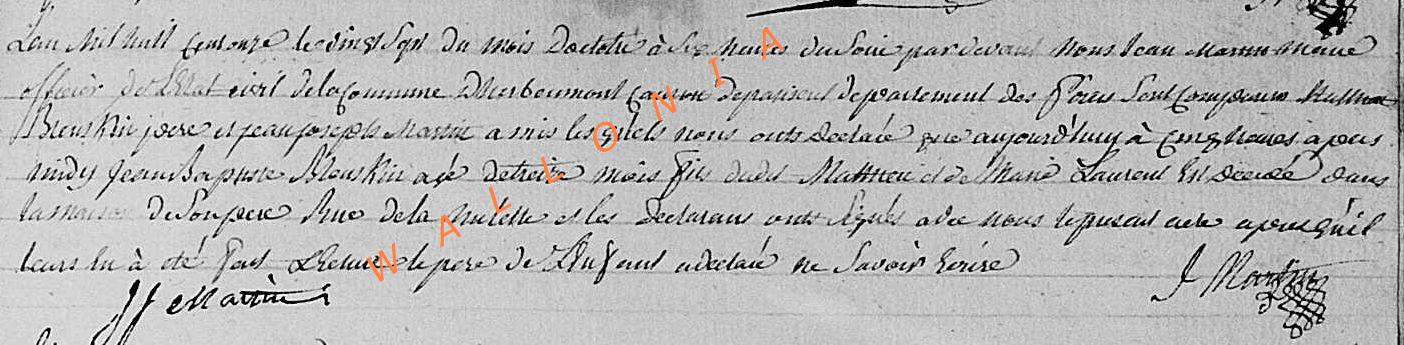 L'an Mil huit Cent onze le vingt Sept du mois Doctobre à Six heures du Soir par devant Nous Jean Martin Maire
officier de L'Etat civil de la Commune D'herbeumont Canton departement des Forets Sont Comparus Mathieu
Bleuskin pere et jean joseph Martin amis lesquels nous onts Declaré que aujourd'huy à Cinq heures apres
midy Jean Baptiste Bleuskin agé de mois Fils dudit Mathieu et de Marie Laurent Est Decedé dans
la maison de Son pere Rue de la et les Declarans onts Signés avec nous le present acte apres qu'il
leurs en à été fait Lecture le pere de L'Enfant a declaré ne Savoir Ecrire
J Martin
JJ Martin
WALLONIA